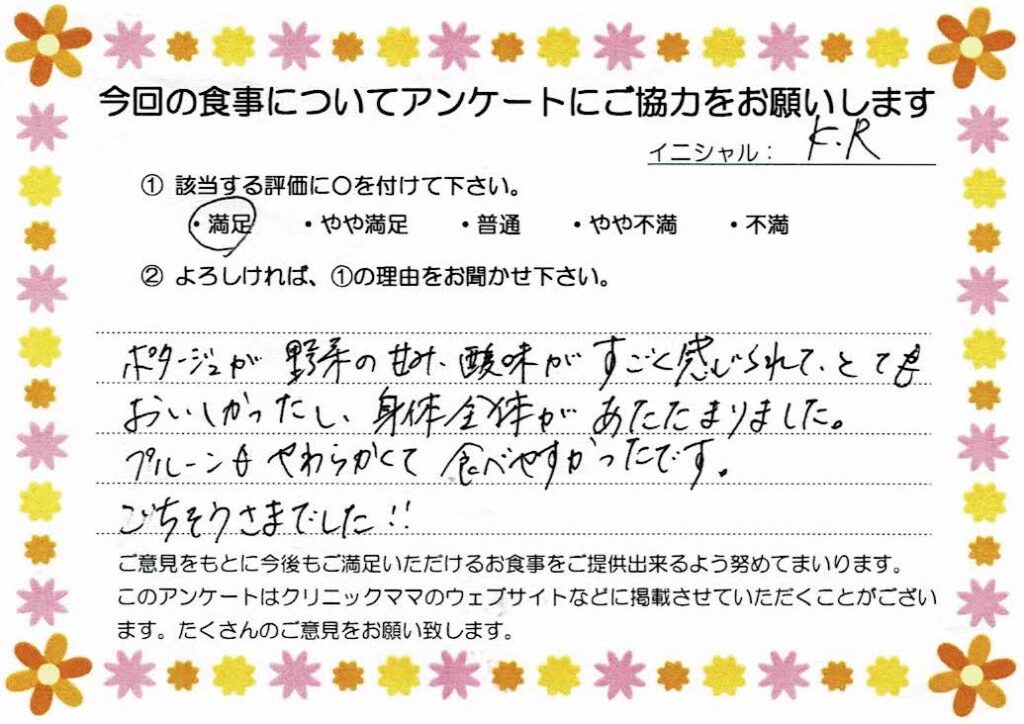 今回の食事についてアンケートにご協力をお願いします
イニシャル： K.R
① 該当する評価に〇を付けて下さい。
・満足 ・やや満足 ・普通 ・やや不満 ・不満
② よろしければ、①の理由をお聞かせ下さい。
ポタージュが 野菜の甘み、酸味が すごく感じられて、とても
おいしかったし、身体全体が あたたまりました。
プルーンも やわらかくて 食べやすかったです。
ごちそうさまでした!!
ご意見をもとに今後もご満足いただけるお食事をご提供出来るよう努めてまいります。
このアンケートはクリニックママのウェブサイトなどに掲載させていただくことがござい
ます。たくさんのご意見をお願い致します。